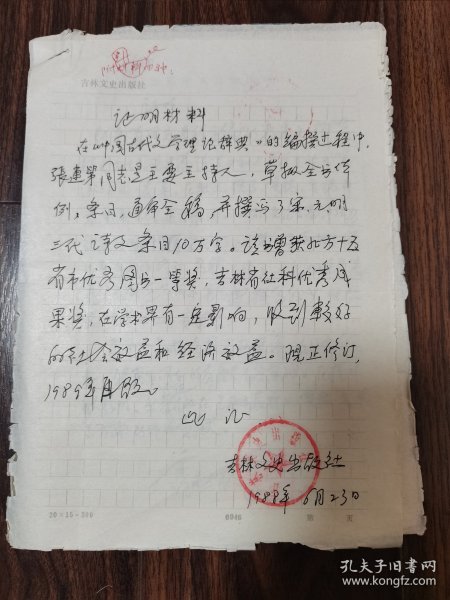 附材料
吉林文史出版社
证明材料
在《中国古代文学理论辞典》的编撰过程中,
張連第同志是主要主持人,草拟全书体
例、条目,通审全稿,并撰写了宋、元、明
三代诗文条目10万字。该书曾获北方十五
省市优秀图书一等奖,吉林省社科优秀成
果奖,在学术界有一定影响,收到较好
的社会效益和经济效益。现正修订,
1989年再版。
此证
吉林文史出版社
1988年6月23日
20×15=300
0046
第 页
孔夫子旧书网
www.kongfz.com